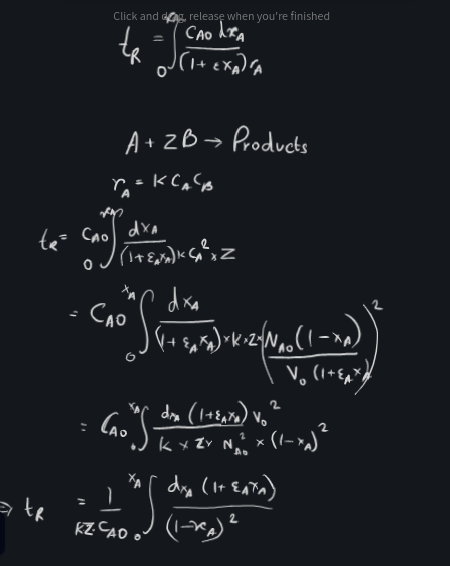 Click and drag, release when you're finished
t_R = ∫_0^{x_A} C_{A0} dx_A / (1 + εx_A) r_A
A + 2B → Products
r_A = K C_A C_B
t_R = C_{A0} ∫_0^{x_A} dx_A / (1 + ε_A x_A) × K C_A^2 × 2
= C_{A0} ∫_0^{x_A} dx_A / (1 + ε_A x_A) × K × 2 × (N_{A0} (1 − x_A) / V_0 (1 + ε_A x_A))^2
= C_{A0} ∫_0^{x_A} dx_A (1 + ε_A x_A) V_0^2 / K × 2 × N_{A0}^2 × (1 − x_A)^2
⇒ t_R = 1 / K2·C_{A0} ∫_0^{x_A} dx_A (1 + ε_A x_A) / (1 − x_A)^2